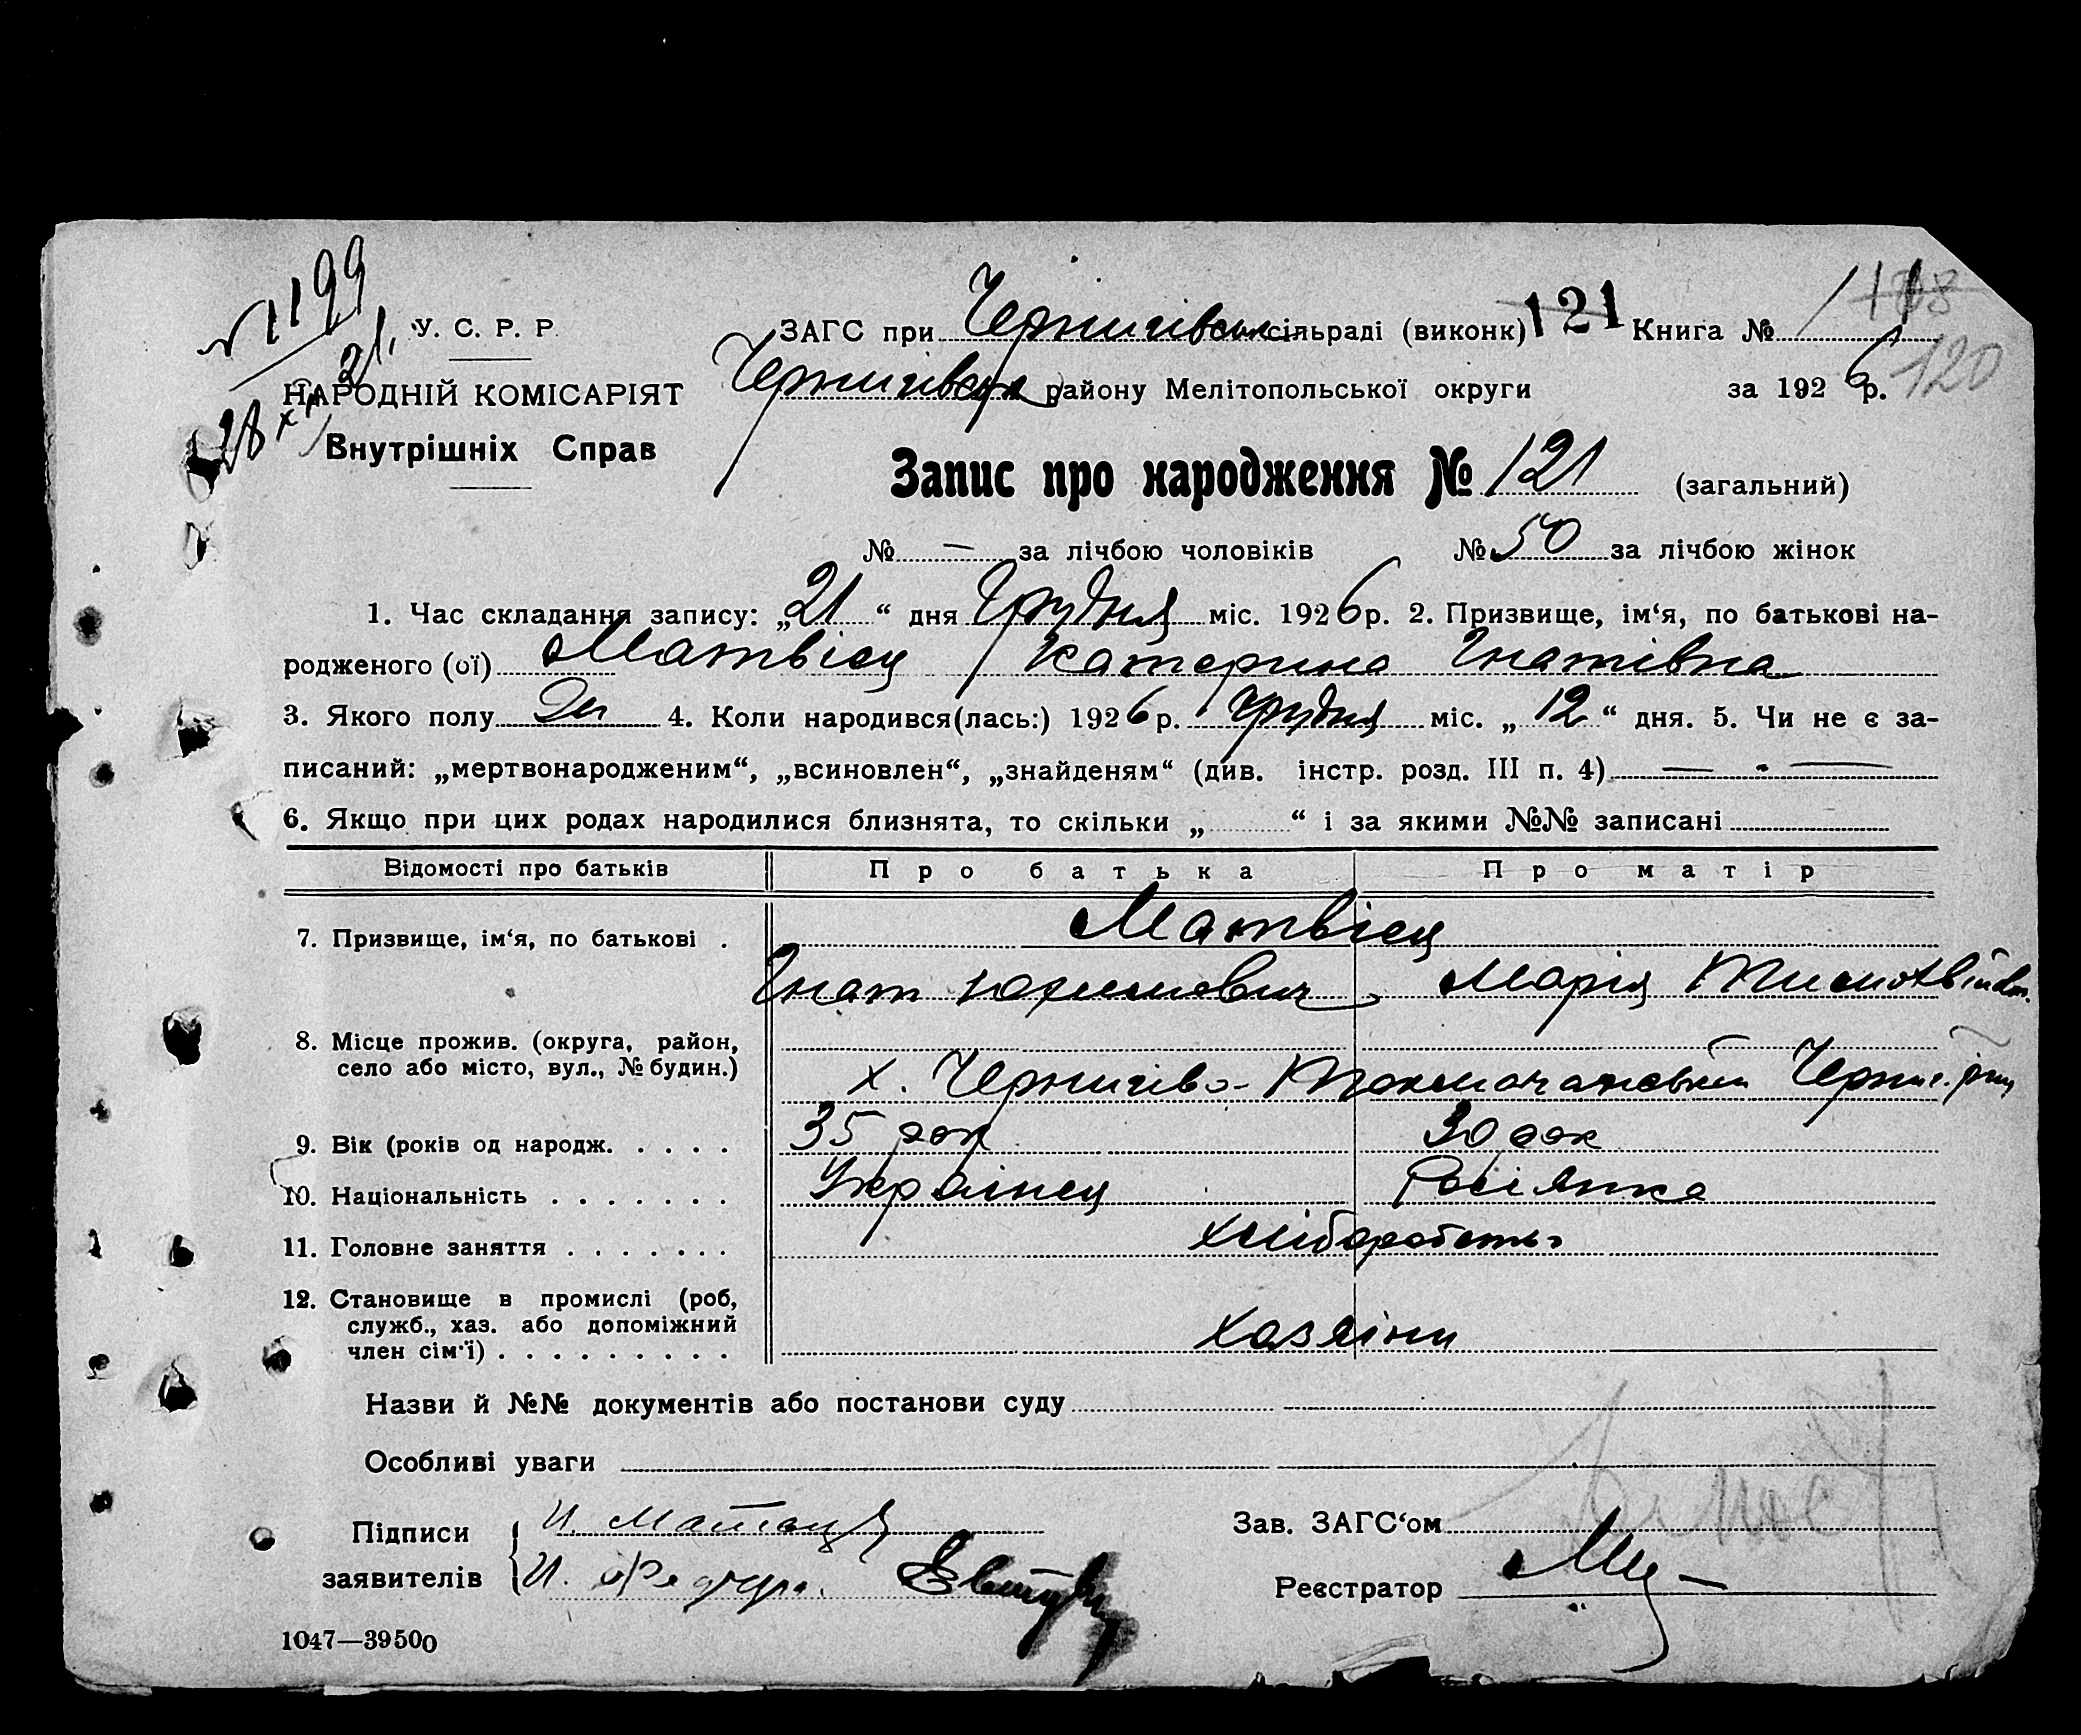 № 1199
21.
28 XII
У. С. Р. Р.
НАРОДНІЙ КОМІСАРІЯТ
Внутрішніх Справ
ЗАГС при Чернигівськ сільраді (виконк) 121 Книга № 1
118
Чернигівськ району Мелітопольської округи за 1926 р.
120
Запис про народження № 121 (загальний)
№ — за лічбою чоловіків № 50 за лічбою жінок
1. Час складання запису: „21“ дня Грудня міс. 1926 р. 2. Призвище, ім‘я, по батькові на-
родженого (ої) Матвієц Катерина Гнатівна
3. Якого полу 4. Коли народився(лась:) 1926 р. Грудня міс. „12“ дня. 5. Чи не є за-
писаний: „мертвонародженим“, „всиновлен“, „знайденям“ (див. інстр. розд. III п. 4) — —
6. Якщо при цих родах народилися близнята, то скільки „ “ і за якими №№ записані
Відомості про батьків Про батька Про матір
7. Призвище, ім‘я, по батькові . Матвієц
Гнат Юхимович Марія
8. Місце прожив. (округа, район,
село або місто, вул., № будин.) х. Чернигово-Токмочанський Черниг. рну
9. Вік (років од народж. . . . . 35 рок 30 рок
10. Національність . . . . . . . Українец Росіянка
11. Головне заняття . . . . . . . хліборобство
12. Становище в промислі (роб,
служб., хаз. або допоміжний
член сім‘ї) . . . . . . . . . хазяіни
Назви й №№ документів або постанови суду
Особливі уваги
Підписи
заявителів
И.
И.
Зав. ЗАГС‘ом
Реєстратор
1047—39500